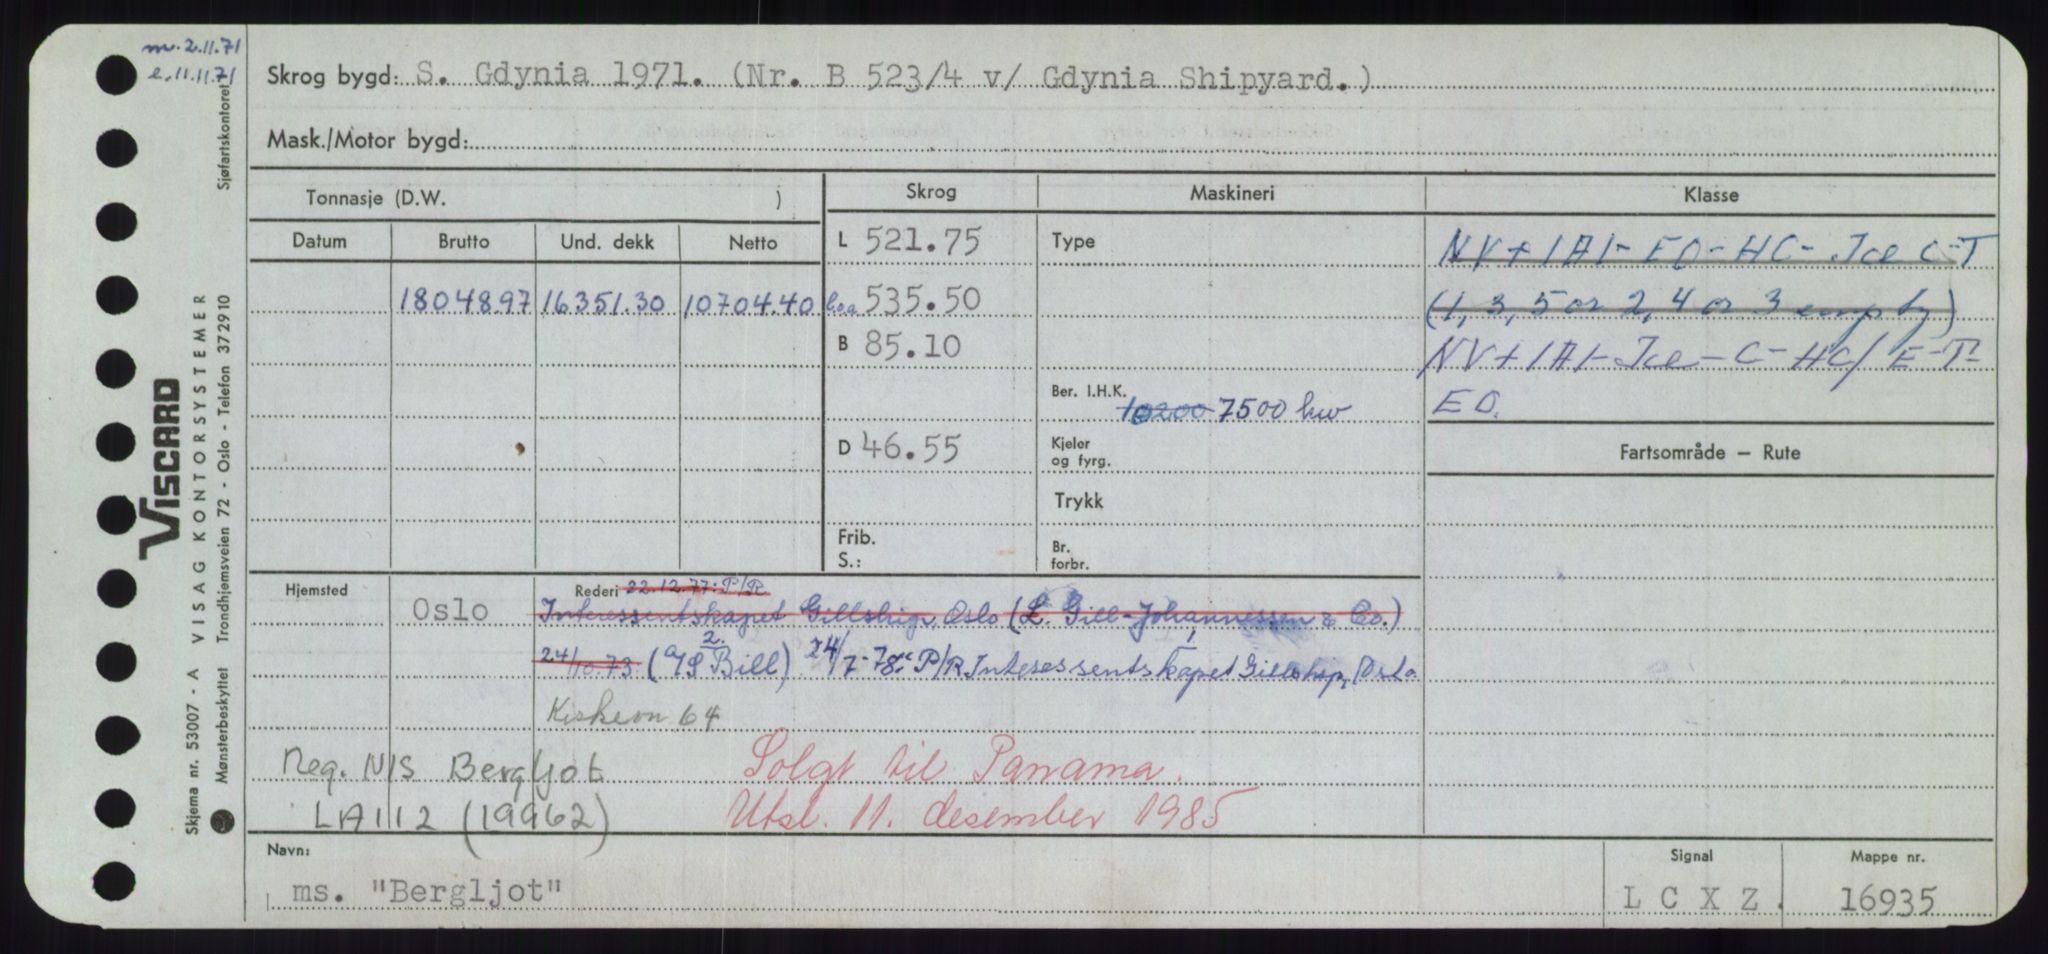 m. 2.11.71
e. 11.11.71
Sjøfartskontoret
Skrog bygd: S. Gdynia 1971. (Nr. B 523/4 v/ Gdynia Shipyard.)
Mask./Motor bygd:
Tonnasje (D.W. )
Skrog
Maskineri
Klasse
Datum
Brutto
Und. dekk
Netto
L 521.75
Type
NV+1A1-EO-HC-Ice C-T
18048.97 16351.30 10704.40
loa 535.50
(1, 3, 5 or 2, 4 or 3 empty)
B 85.10
NV+1A1-Ice-C-HC/E-T-
Ber. I.H.K. 10200 7500 kw
EO.
D 46.55
Kjeler og fyrg.
Fartsområde — Rute
Trykk
Frib.
S.:
Br. forbr.
Hjemsted
Oslo
Rederi 22.12.77: P/R
Interessentskapet Gillship, Oslo (L. Gill-Johannessen & Co.)
24/10.73 (A/S Bill) 2. 24/7-78: P/R Interessentskapet Gillship, Oslo
64
Reg. NIS Bergljot
Solgt til Panama.
LAII2 (19962)
Utsl. 11. desember 1985
Navn:
ms. "Bergljot"
Signal
L C X Z .
Mappe nr.
16935
VISCARD
Skjema nr. 53007 - A VISAG KONTORSYSTEMER
Mønsterbeskyttet Trondhjemsveien 72 - Oslo - Telefon 372910